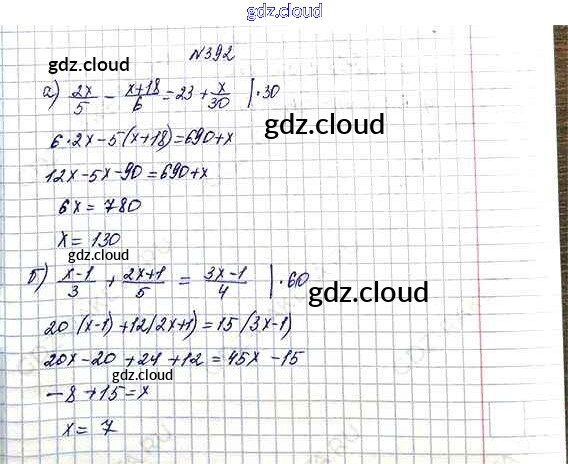 gdz.cloud
№392
gdz.cloud
а) 2x/5 − (x+18)/6 = 23 + x/30 |·30
gdz.cloud
6·2x − 5(x+18) = 690 + x
12x − 5x − 90 = 690 + x
6x = 780
x = 130
gdz.cloud
б) (x−1)/3 + (2x+1)/5 = (3x−1)/4 |·60
gdz.cloud
20(x−1) + 12(2x+1) = 15(3x−1)
20x − 20 + 24 + 12 = 45x − 15
gdz.cloud
−8 + 15 = x
x = 7